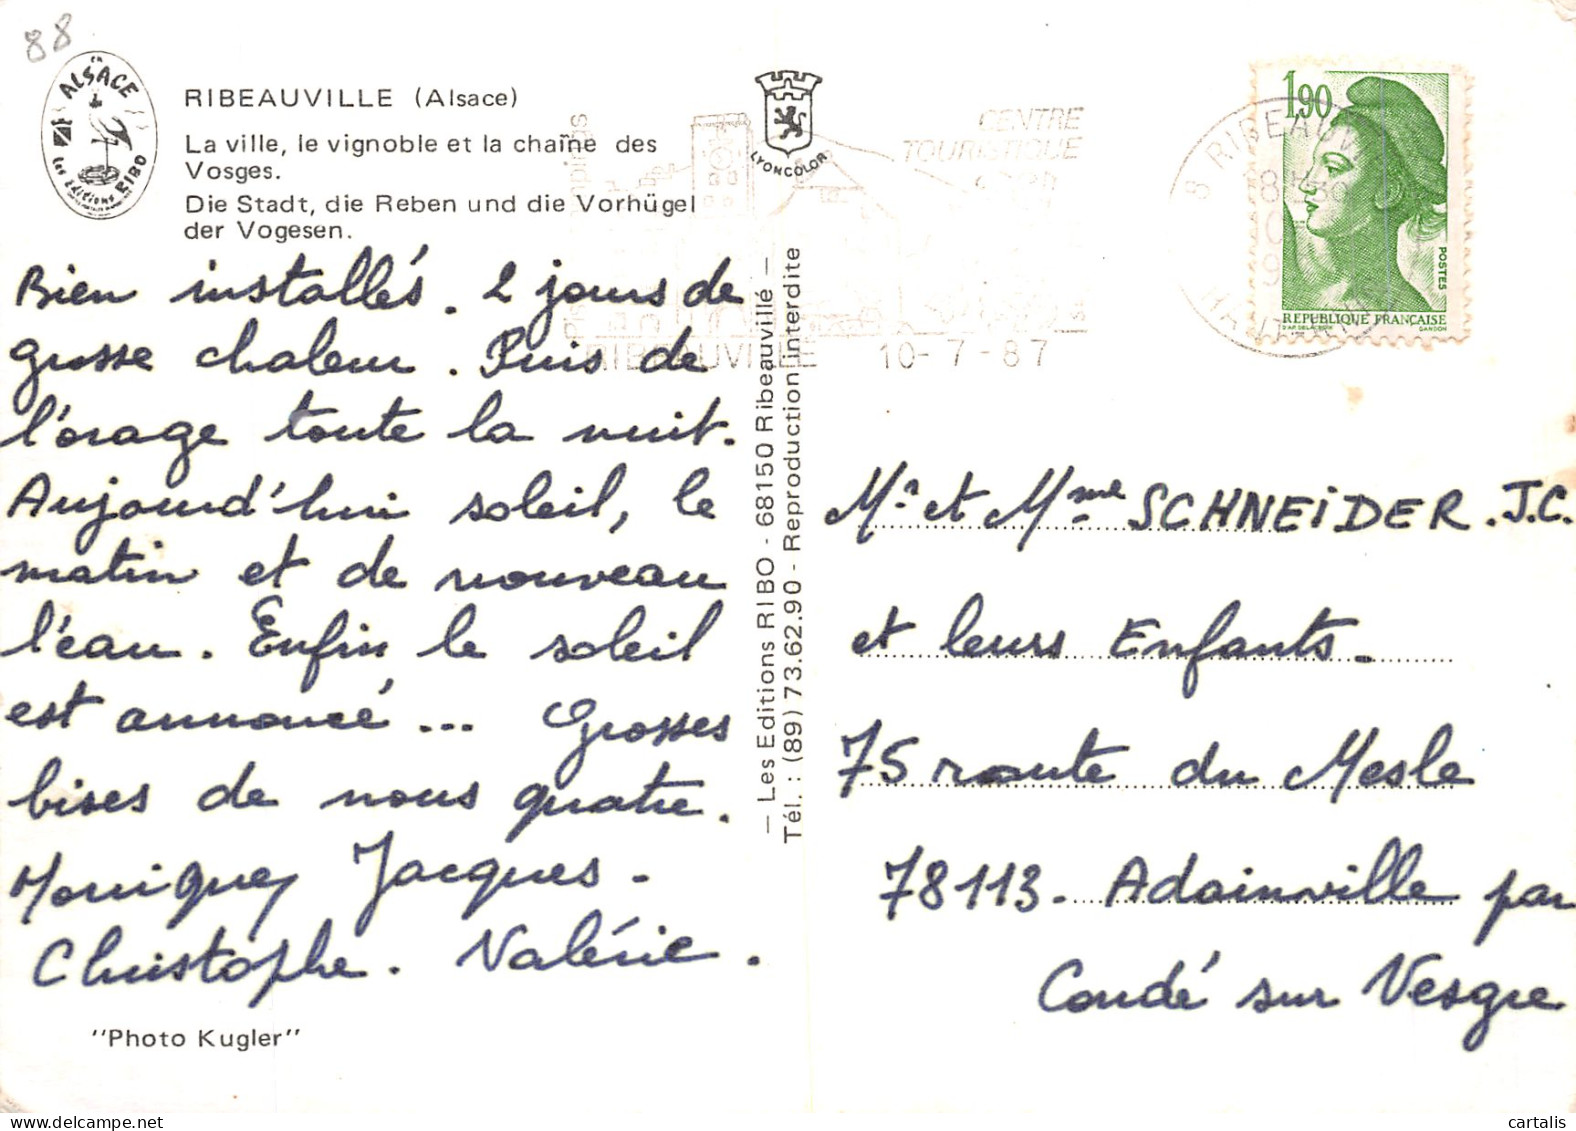 88
EN
ALSACE
Les Editions RIBO
RIBEAUVILLE (Alsace)
La ville, le vignoble et la chaîne des
Vosges.
Die Stadt, die Reben und die Vorhügel
der Vogesen.
Bien installés. 2 jours de
grosse chaleur. Puis de
l'orage toute la nuit.
Aujourd'hui soleil, le
matin et de nouveau
l'eau. Enfin le soleil
est annoncé ... Grosses
bises de nous quatre.
Monique, Jacques -
Christophe. Valérie.
"Photo Kugler"
LYONCOLOR
— Les Editions RIBO - 68150 Ribeauvillé —
Tél. : (89) 73.62.90 - Reproduction interdite
CENTRE
TOURISTIQUE
RIBEAUVILLE 10-7-87
1,90
POSTES
REPUBLIQUE FRANÇAISE
D'AP. DELACROIX GANDON
Mr et Mme SCHNEIDER. J.C.
et leurs Enfants.
75 route du Mesle
78113. Adainville par
Condé sur Vesgre
cartalis